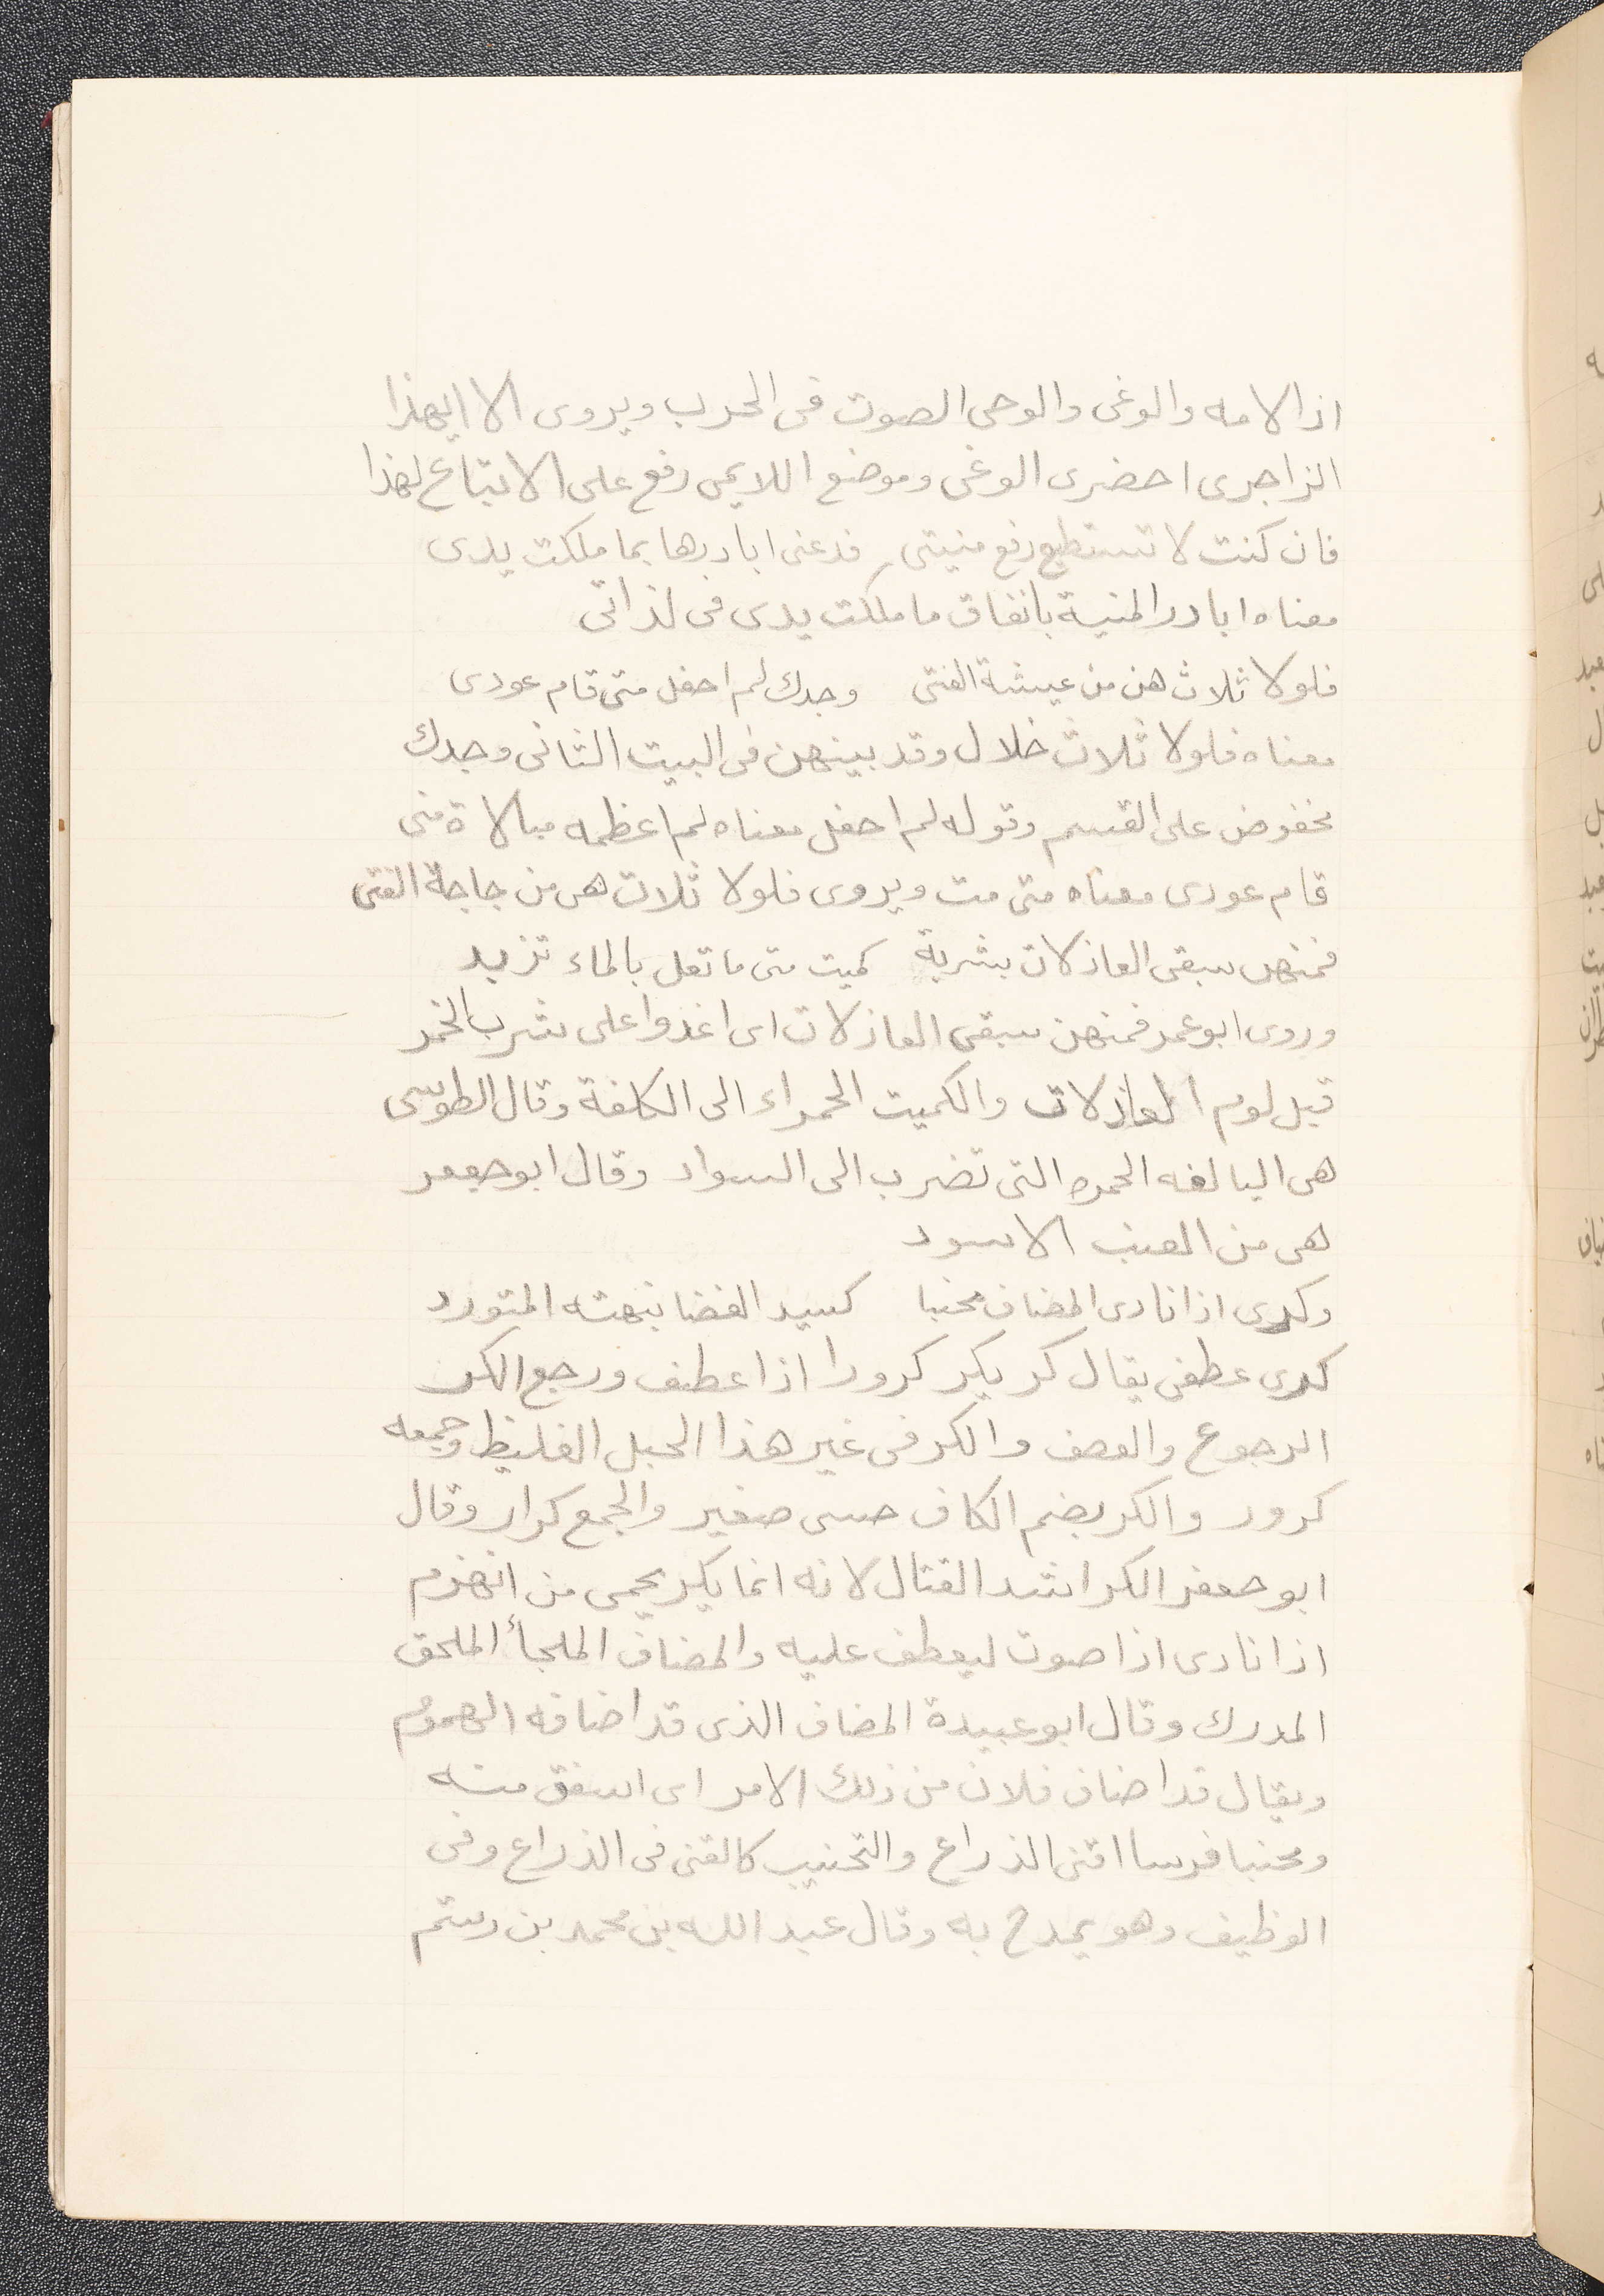 اذا لامه والوغى والوحى الصوت فى الحرب ويروى الا ايهذا
الزاجرى احضرى الوغى وموضع اللايمى رفع على الاتباع لهذا
فان كنت لا تستطيع دفع منيتى فدعنى ابادرها بما ملكت يدى
معناه ابادر المنية بانفاق ما ملكت يدى فى لذاتى
فلولا ثلاث هن من عيشة الفتى وجدك لم احفل متى قام عودى
معناه فلولا ثلاث خلال وقد بينهن فى البيت الثانى وجدك
مخفوض على القسم وقوله لم احفل معناه لم اعظمه مبالاة متى
قام عودى معناه متى مت ويروى فلولا ثلاث هى من حاجة الفتى
فمنهن سبقى العاذلات بشربة كميت متى ما تعل بالماء تزبد
وروى ابو عمر فمنهن سبقى العاذلات اى اغدوا على شرب الخمر
قبل لوم العاذلات والكميت الحمراء الى الكلفة وقال الطوسى
هى البالغه الحمره التى تضرب الى السواد وقال ابو جعفر
هى من العنب الاسود
وكرى اذا نادى المضاف محنبا كسيد الغضا نبهته المتورد
كرى عطفى يقال كر يكر كرورا اذا عطف ورجع الكر
الرجوع والعصف والكر فى غير هذا الحبل الغليظ وجمعه
كرور والكر بضم الكاف حسى صغير والجمع كرار وقال
ابو جعفر الكر اشد القتال لانه انما يكر يحمى من انهزم
اذا نادى اذا صوت ليعطف عليه والمضاف الملجأ الملحق
المدرك وقال ابو عبيدة المضاف الذى قد اضافه الهموم
ويقال قد اضاف فلان من ذلك الامر اى اشفق منه
ومحنبا فرسا اقنى الذراع والتحنيب كالقنى فى الذراع وفى
الوظيف وهو يمدح به وقال عبد الله بن محمد بن رستم